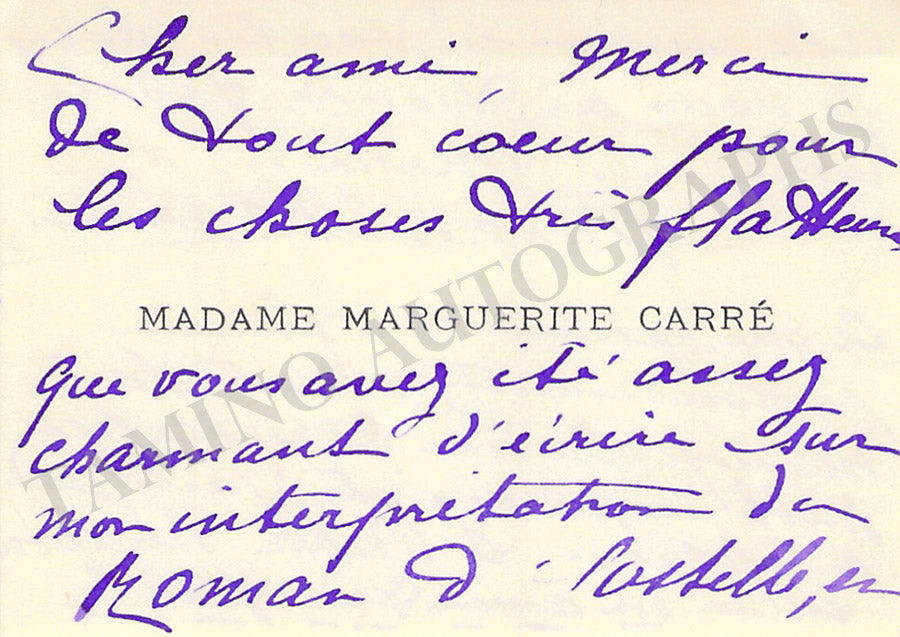 Cher ami, Merci
de tout coeur pour
les choses très flatteuses
MADAME MARGUERITE CARRÉ
que vous avez été assez
charmant d'écrire sur
mon interprétation du
Roman d'Estelle, en
TAMINO AUTOGRAPHS